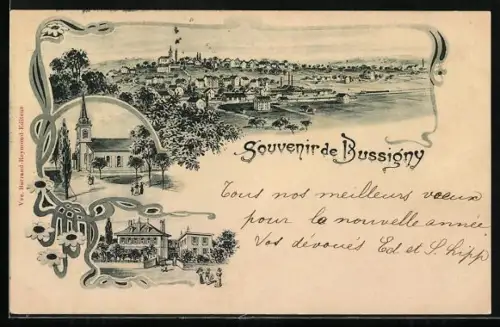 Souvenir de Bussigny
Tous nos meilleurs vœux
pour la nouvelle année
Vos dévoués Ed et S. Hipp
Vve. Bertrand-Reymond-Editeur